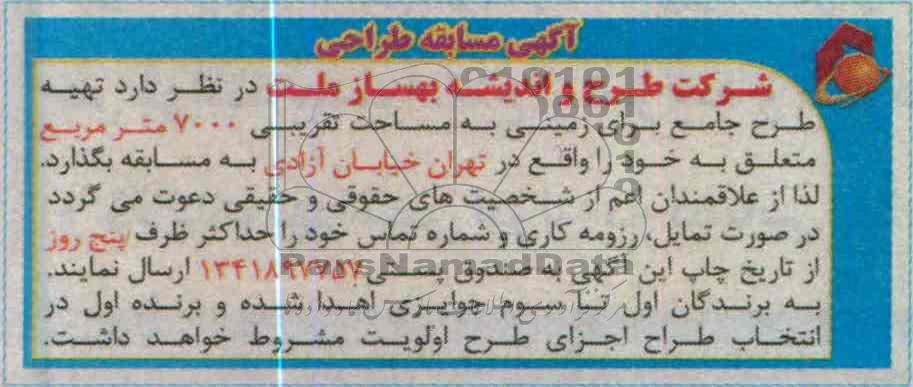 آگهی مسابقه طراحی
شرکت طرح و اندیشه بهساز ملت در نظر دارد تهیه
طرح جامع برای زمینی به مساحت تقریبی ۷۰۰۰ متر مربع
متعلق به خود را واقع در تهران خیابان آزادی به مسابقه بگذارد.
لذا از علاقمندان اعم از شخصیت های حقوقی و حقیقی دعوت می گردد
در صورت تمایل، رزومه کاری و شماره تماس خود را حداکثر ظرف پنج روز
از تاریخ چاپ این آگهی به صندوق پستی ارسال نمایند.
به برندگان اول تا سوم جوایزی اهدا شده و برنده اول در
انتخاب طراح اجزای طرح اولویت مشروط خواهد داشت.
ParsNamadData